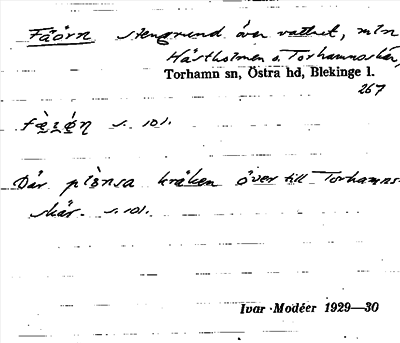 Fåörn stengrund över vattnet, mln
Hästholmen o. Torhamnaskär,
Torhamn sn, Östra hd, Blekinge l.
267
s. 101.
Där plönsa kråken över till Torhamns-
skär. s. 101.
Ivar Modéer 1929—30